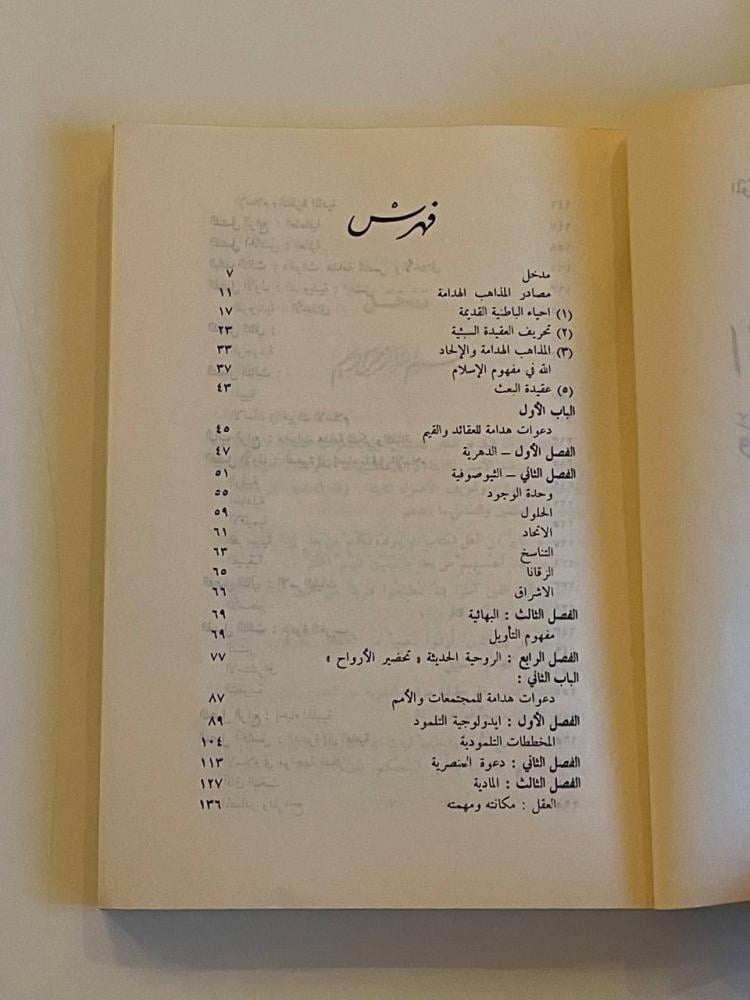 فهرس
مدخل ٧
مصادر المذاهب الهدامة ١١
(١) احياء الباطنية القديمة ١٧
(٢) تحريف العقيدة السبئية ٢٣
(٣) المذاهب الهدامة والإلحاد ٣٣
الله في مفهوم الإسلام ٣٧
(٥) عقيدة البعث ٤٣
الباب الأول
دعوات هدامة للعقائد والقيم ٤٥
الفصل الأول – الدهرية ٤٧
الفصل الثاني – الثيوصوفية ٥١
وحدة الوجود ٥٥
الحلول ٥٩
الاتحاد ٦١
التناسخ ٦٣
الرقانا ٦٥
الاشراق ٦٦
الفصل الثالث : البهائية ٦٩
مفهوم التأويل ٦٩
الفصل الرابع : الروحية الحديثة « تحضير الأرواح » ٧٧
الباب الثاني :
دعوات هدامة للمجتمعات والأمم ٨٧
الفصل الأول : ايدولوجية التلمود ٨٩
المخططات التلمودية ١٠٤
الفصل الثاني : دعوة العنصرية ١١٣
الفصل الثالث : المادية ١٢٧
العقل : مكانته ومهمته ١٣٦